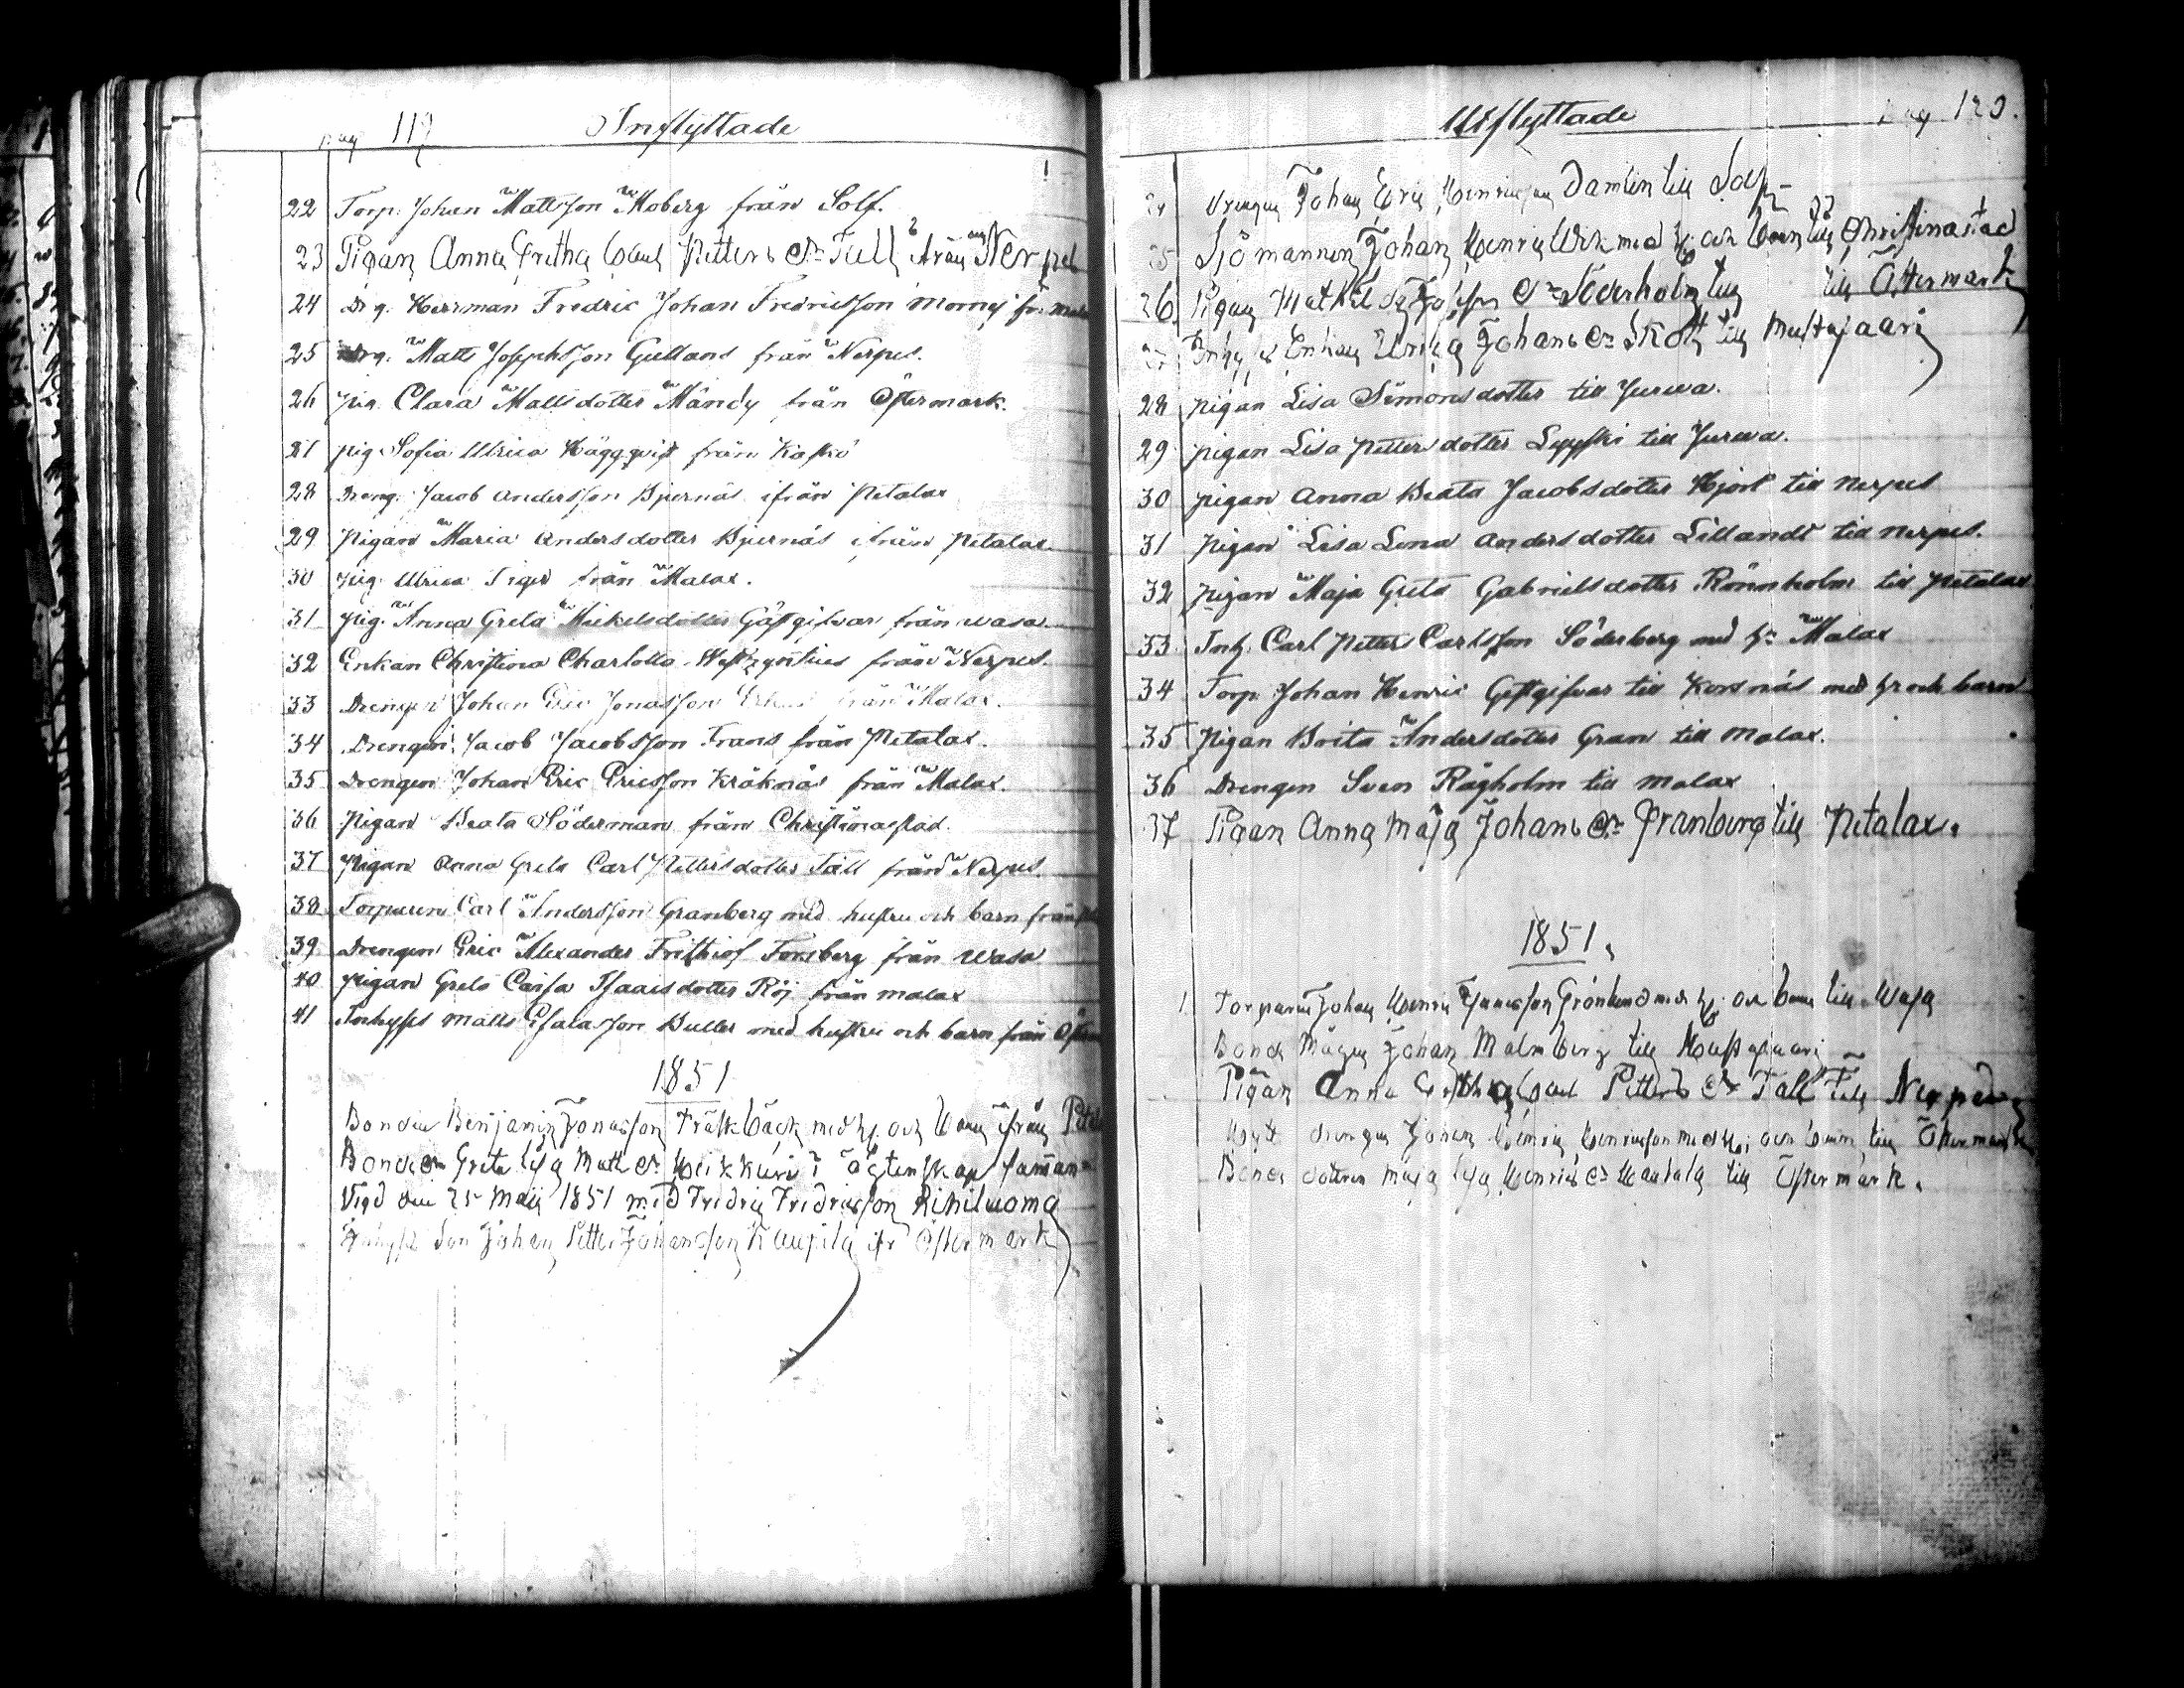 pag 119 Inflyttade
22 Torp. Johan Mattsson Moberg från Solf.
23 Pigan Anna Gretha Carl Petters dr Tall ifrån Nerpes
24 Drg. Herrman Fredric Johan Fredricsson
25 Drg. Matts Josephsson Gullans från Nerpes.
26 Pig. Clara Mattsdotter Mändy från Östermark.
27 Pig. Sofia Ulrica Häggqvist från Kaskö
28 Dreng. Jacob Andersson Bjernäs ifrån Petalax
29 Pigan Maria Andersdotter Bjernäs ifrån Petalax.
30 Pig. Ulrica Tiger från Malax.
31 Pig. Anna Greta Mickelsdotter Gästgifvar från Wasa.
32 Enkan Christina Charlotta från Nerpes.
33 Drengen Johan Eric Jonasson från Malax.
34 Drengen Jacob Jacobsson Frans från Petalax.
35 Drengen Johan Eric Ericsson Kråknäs från Malax.
36 Pigan Beata Söderman från Christinastad.
37 Pigan Anna Greta Carl Pettersdotter Tall från Nerpes.
38 Torparen Carl Andersson Granberg med hustru och barn från
39 Drengen Eric Alexander Frithiof Forsberg från Wasa
40 Pigan Greta Caisa Isaacsdotter Röj från Malax
41 Inhyses Matts Esaiasson Buller med hustru och barn från
1851
Bonden Benjamin Jonasson Träskbäck med h. och barn ifrån
Bonde dr Greta Lisa Matts dr i ägtenskap samman
Vigd den 25 Maij 1851 med Fredric Fredricsson Rihiluoma
son Johan Petter Johansson Kaupila ifr Östermark
Utflyttade pag 120.
24 Drengen Johan Eric Henricsson Damlin till Solf
25 Sjömannen Johan Henric Wik med h. och barn till Christinastad
26 Pigan Mathilda dr Söderholm till till Östermark
27 Enkan Ulrica Johans dr Skott till Mustasaari
28 Pigan Lisa Simonsdotter till Jurwa.
29 Pigan Lisa Pettersdotter till Jurwa.
30 Pigan Anna Beata Jacobsdotter Hjort till Nerpes
31 Pigan Lisa Lena Andersdotter Lillandt till Nerpes.
32 Pigan Maja Greta Gabrielsdotter Rönnholm till Petalax
33 Inh. Carl Petter Carlsson Söderberg med h. Malax
34 Torp. Johan Henric Gestgifvar till Korsnäs med h och barn
35 Pigan Brita Andersdotter Gran till Malax.
36 Drengen Sven Rågholm till Malax
37 Pigan Anna Maja Johans dr Granberg till Petalax.
1851.
1 Torparen Johan Henric Grönlund med h. och barn till Wasa
Bonde Mågen Johan Malmberg till Mustasaari
Pigan Anna Gretha Carl Petters dr Tall till Nerpes
drengen Johan Henric Henricsson med h. och barn till Östermark
Bonde dottren Maja Lisa Henrics dr till Östermark.